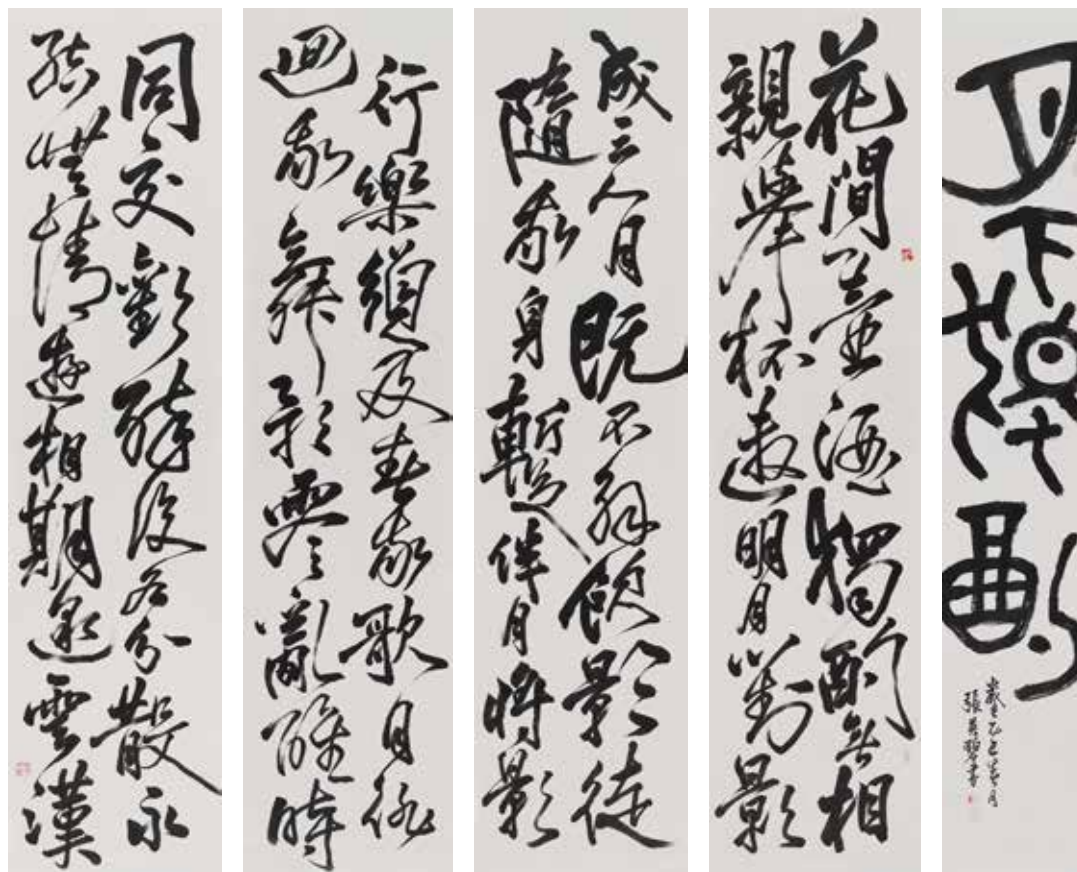 月下獨酌
花間一壺酒獨酌無相
親舉杯邀明月對影
成三人月既不解飲影徒
隨我身暫伴月將影
行樂須及春我歌月徘
迴我舞影零亂醒時
同交歡醉後各分散永
結無情遊相期邈雲漢